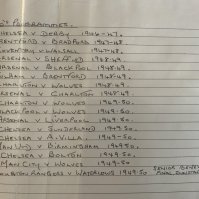 PROGRAMMES.
CHELSEA V DERBY 1946-47.
BRENTFORD V BRADFORD 1947-48.
COVENTRY V WALSALL 1947-48.
ARSENAL V SHEFF UTD 1948-49.
ARSENAL V BLACKPOOL 1948-49.
FULHAM V BRENTFORD 1948-49.
CHARLTON V WOLVES 1948-49.
ARSENAL V CHARLTON 1948-49.
CHARLTON V WOLVES 1949-50.
ARSENAL V BLACKPOOL 1949-50.
FULHAM V WOLVES 1949-50.
ARSENAL V LIVERPOOL 1949-50.
CHELSEA V SUNDERLAND 1949-50.
CHELSEA V A. VILLA 1949-50.
MAN UTD V BIRMINGHAM 1949-50.
CHELSEA V BOLTON 1949-50.
MAN CITY V WOLVES 1949-50.
RANGERS V 1949-50 SENIOR